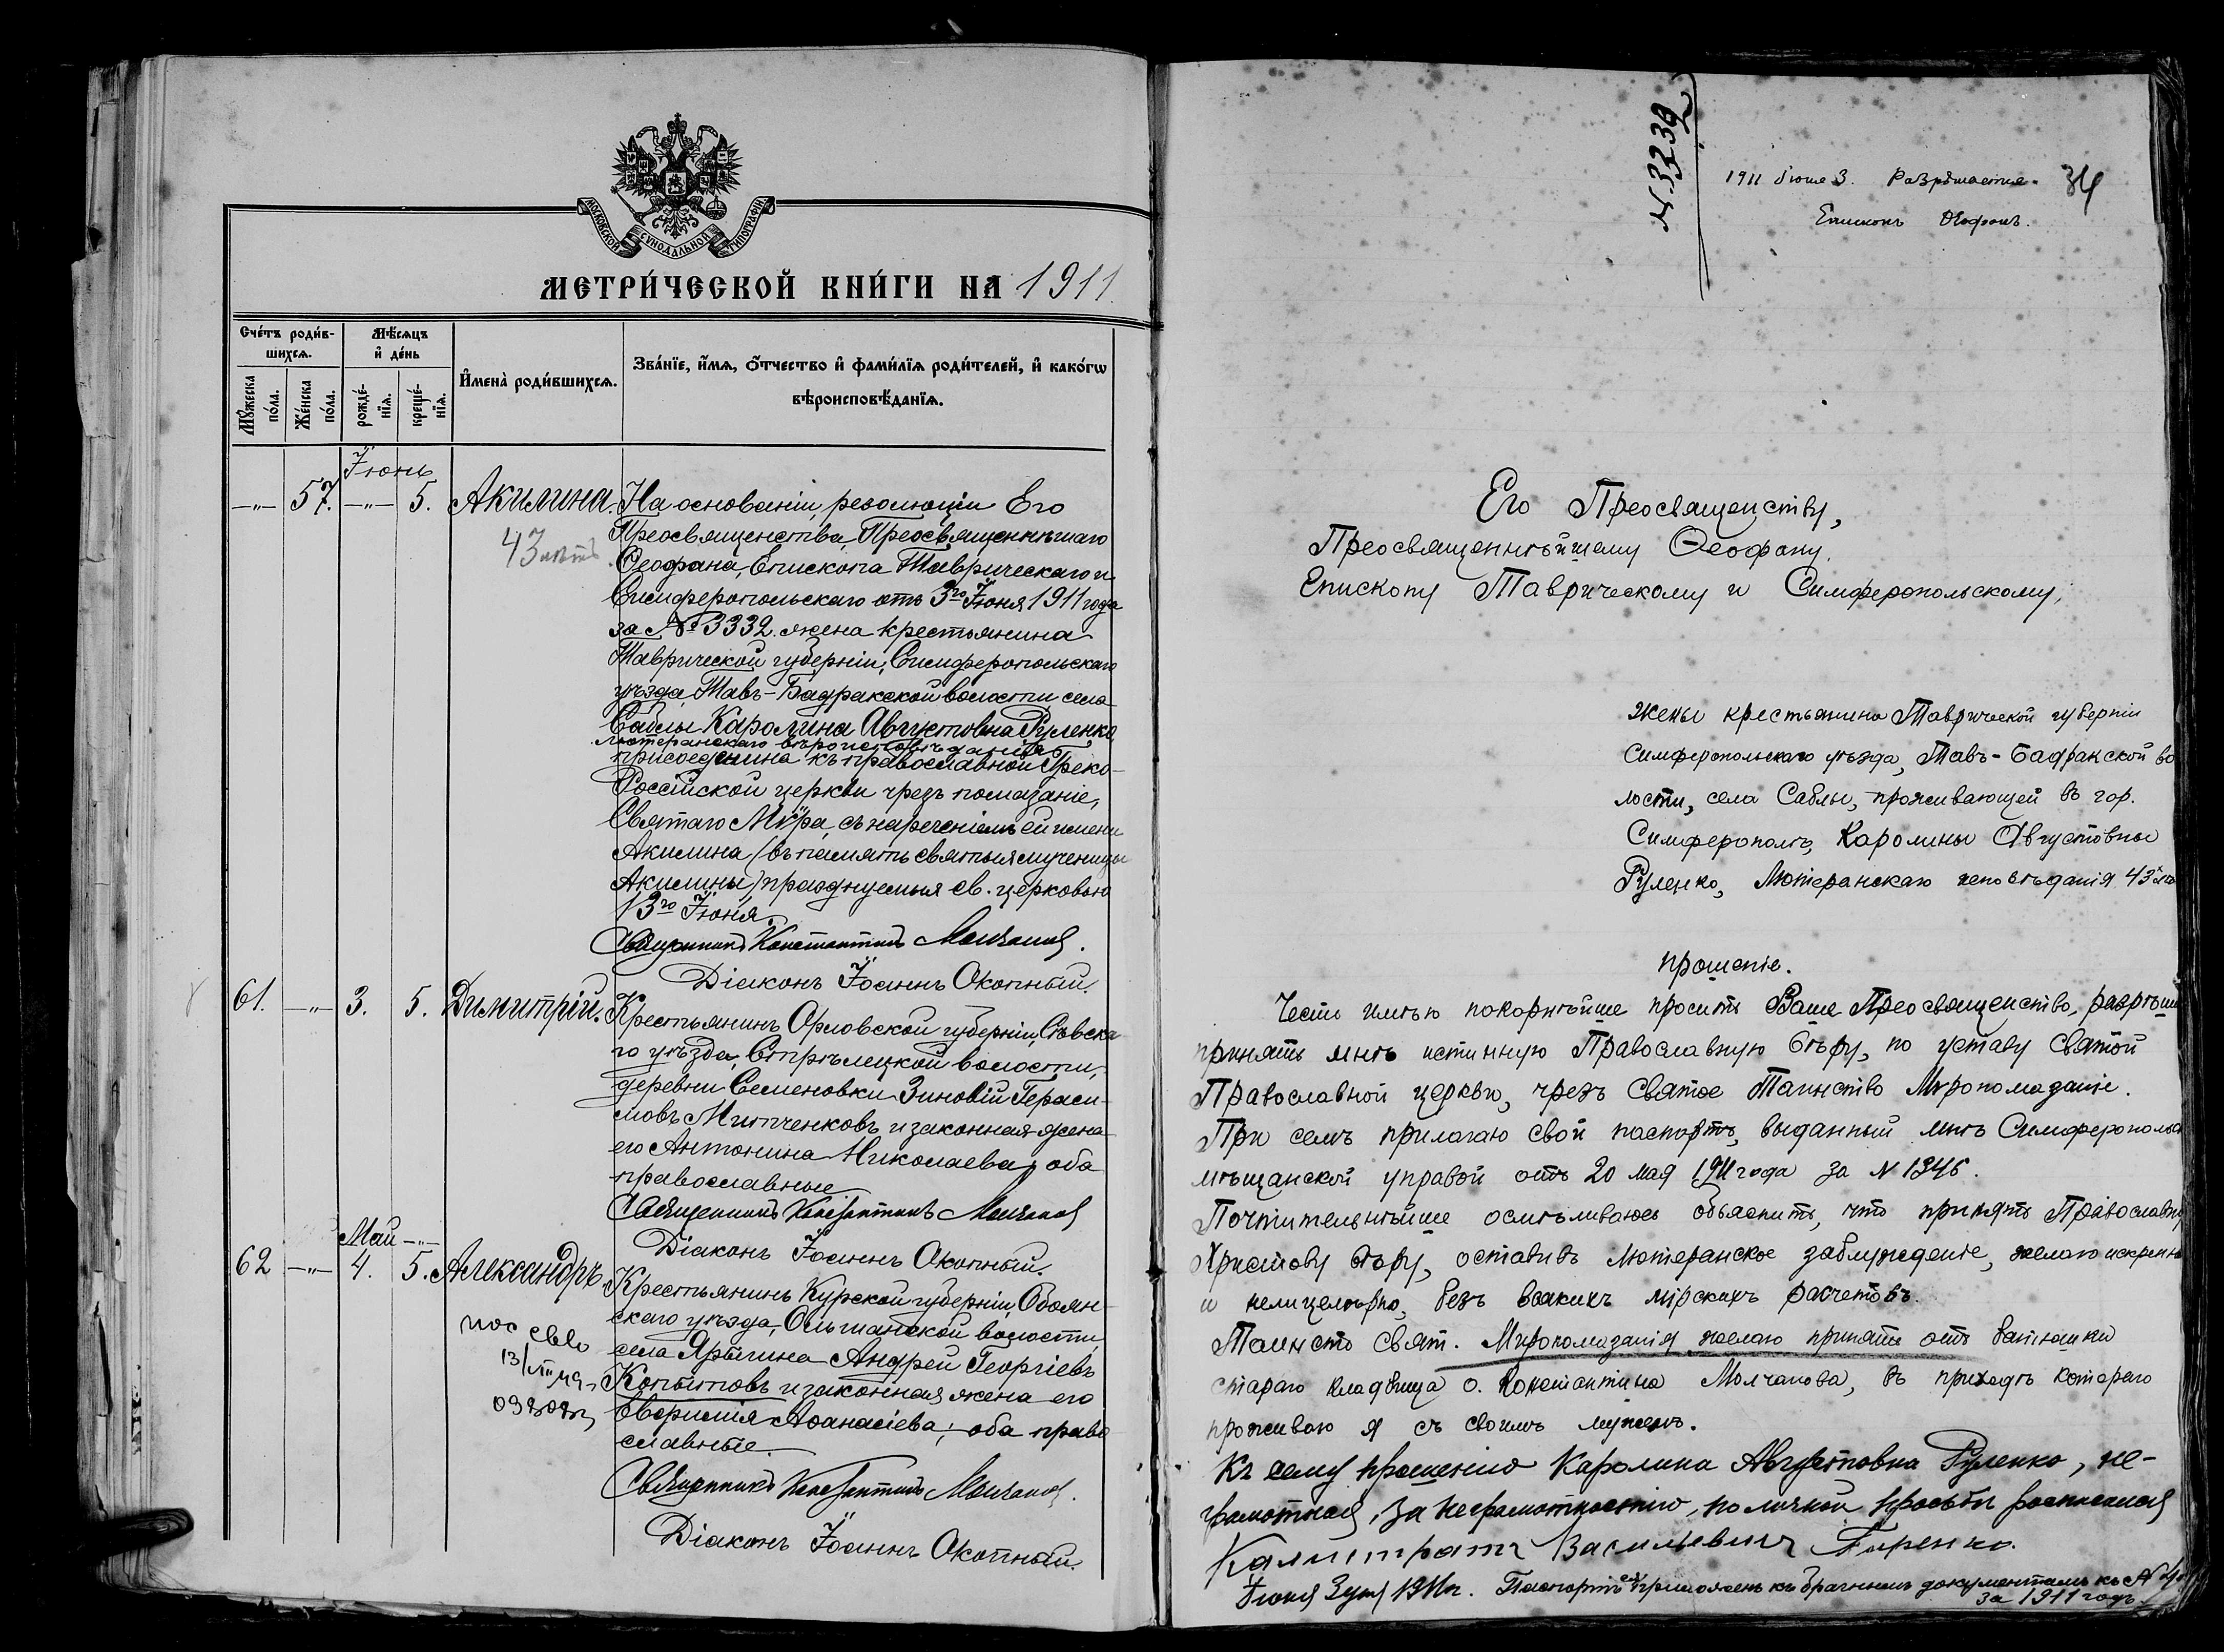 МОСКОВСКОЙ СѴНОДАЛЬНОЙ ТИПОГРАФІИ
МЕТРИ́ЧЕСКОЙ КНИ́ГИ НА 1911
Сче́тъ роди́в-
шихсѧ.
Мѣ́сѧцъ
и҆ де́нь
И҆мена̀ роди́вшихсѧ.
Зва́нїе, и҆́мѧ, ѻ҆́тчество и҆ фами́лїѧ роди́телей, и҆ како́гѡ
вѣроисповѣ́данїѧ.
Мꙋ́жеска
по́ла.
Же́нска
по́ла.
рожде́-
нїѧ.
креще́-
нїѧ.
Іюнь
—„— 57. —„— 5. Акилина. На основаніи резолюціи Его
Преосвященства, Преосвященнѣйшаго
43 лѣтъ
Ѳеофана, Епископа Таврическаго и
Симферопольскаго отъ 3го Іюня 1911 года
за № 3332. жена крестьянина
Таврической губерніи, Симферопольскаго
уѣзда, Тавъ-Бадракской волости, села
Саблы Каролина Августовна Руленко
лютеранскаго вѣроисповѣданія
присоединена къ православной Греко-
Россійской церкви чрезъ помазаніе,
Святаго Мѵра, съ нареченіемъ ей имени
Акилина (въ память святыя мученицы
Акилины) празднуемыя св. церковью
13го Іюня.
Священникъ Константинъ Молчановъ.
Діаконъ Іоаннъ Окопный.
61. —„— 3. 5. Димитрій. Крестьянинъ Орловской губерніи, Сѣвска-
го уѣзда, Стрѣлецкой волости,
деревни Семеновки Зиновій Гераси-
мовъ Митченковъ и законная жена
его Антонина Николаева, оба
православные
Священникъ Константинъ Молчановъ
Діаконъ Іоаннъ Окопный.
Май —„—
62 —„— 4. 5. Александръ. Крестьянинъ Курской губерніи, Обоян-
скаго уѣзда, Ольшанской волости,
села Ярыгина Андрей Георгіевъ
Копытовъ и законная жена его
Евфимія Аѳанасіева; оба право
славные.
Священникъ Константинъ Молчановъ.
Діаконъ Іоаннъ Окопный.
№ 3332
1911 Іюня 3. Разрѣшается. 34
Епископъ Ѳеофанъ.
Его Преосвященству,
Преосвященнѣйшему Ѳеофану,
Епископу Таврическому и Симферопольскому,
жены крестьянина Таврической губерніи
Симферопольскаго уѣзда, Тавъ-Бадракской во
лости, села Саблы, проживающей въ гор.
Симферополѣ, Каролины Августовны
Руленко, Лютеранскаго исповѣданія 43
прошеніе.
Честь имѣю покорнѣйше просить Ваше Преосвященство, разрѣши
принять мнѣ истинную Православную Вѣру, по уставу Святой
Православной церкви, чрезъ Святое Таинство Мѵропомазаніе.
При семъ прилагаю свой паспортъ, выданный мнѣ Симферопольск
мѣщанской управой отъ 20 мая 1911 года за N 1346.
Почтительнѣйше осмѣливаюсь объяснить, что принять Православну
Христову вѣру, оставивъ Лютеранское заблужденіе, желаю искренно
и нелицемѣрно, безъ всякихъ мірскихъ расчетовъ.
Таинство Свят. Мѵропомазанія желаю принять отъ батюшки
стараго кладбища о. Константина Молчанова, въ приходѣ котораго
проживаю я съ своимъ мужемъ.
Къ сему прошенію Каролина Августовна Руленко, не-
грамотная, за неграмотностію, по личной просьбѣ росписался
Калистратъ Васильевичъ Гиренко.
Іюня 3 дня 1911 г. Паспортъ ея приложенъ къ брачнымъ документамъ къ №
за 1911 годъ.